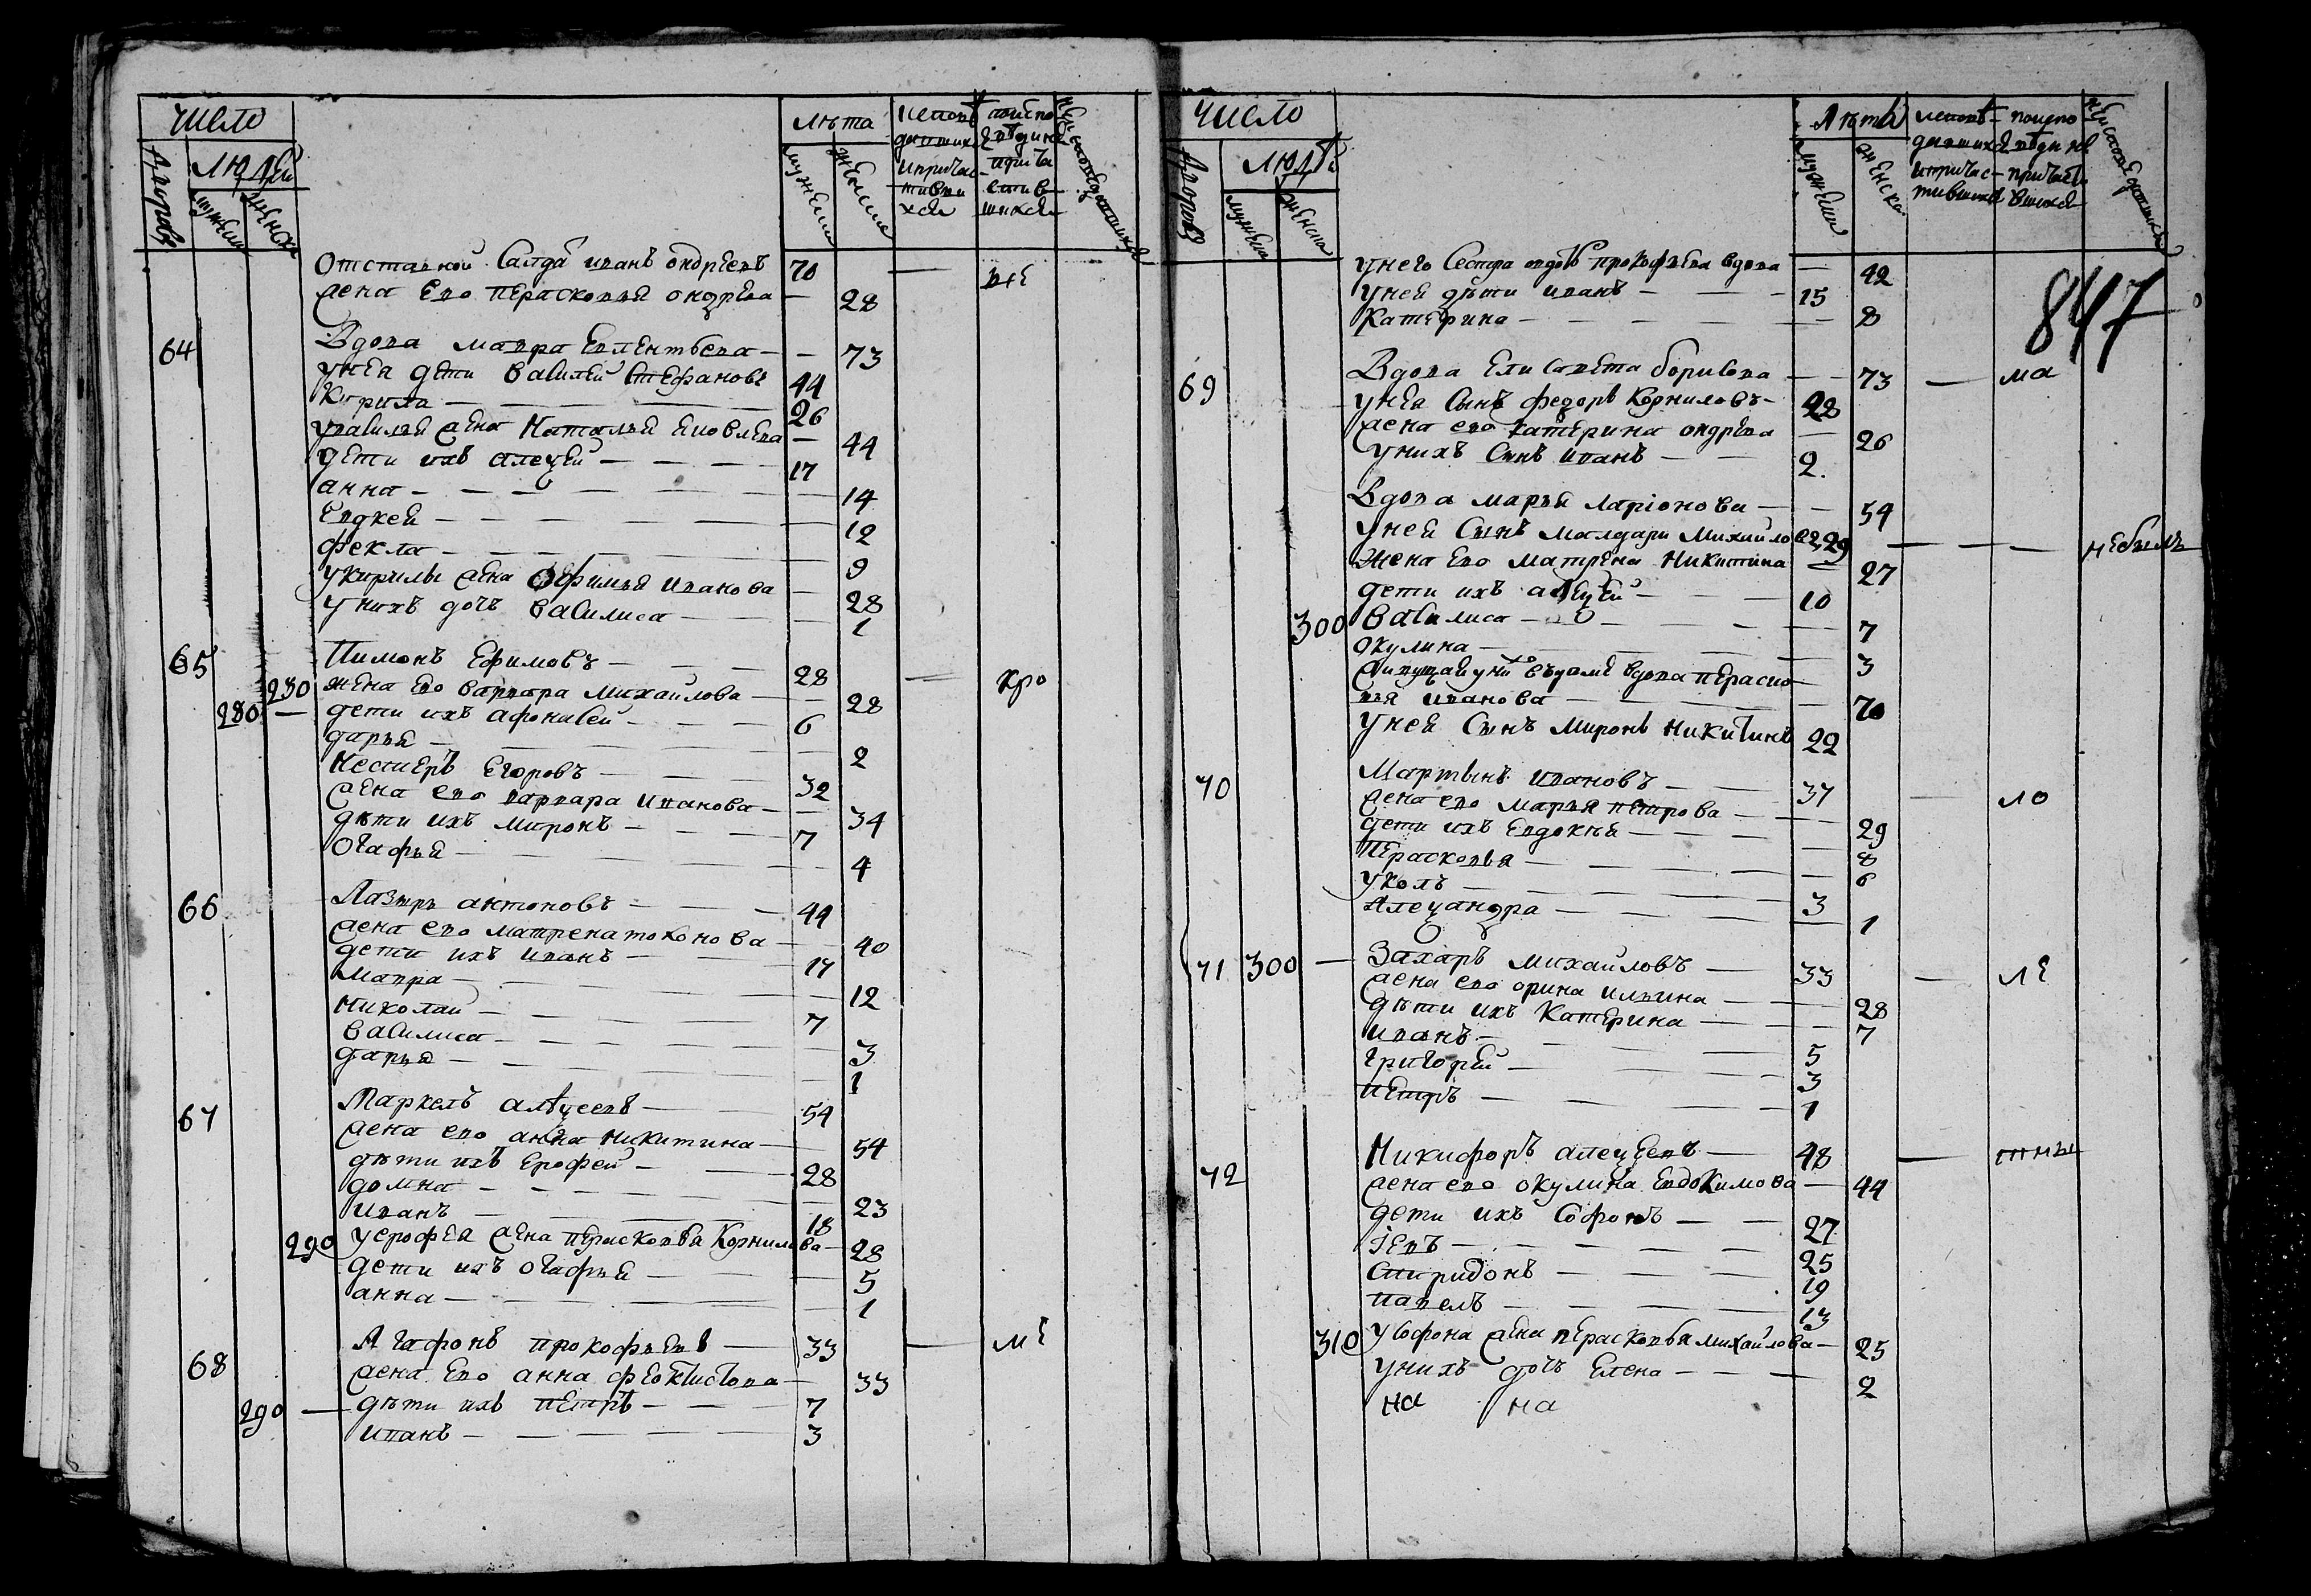 число
людей
дворовъ
мужеска
женска
лѣта
мужеска
женска
исповѣ
давшихся
ипричас
тивши
хся
поиспо
вѣдине
прича
стив
шихся
Отставной Салда иванъ ондрѣевъ 70 —
жена Ево перасковья ондрева — 28
64 Вдова мавра Евлентьева — — 73
унея дети василей Стефановъ 44
Кирила — — — — 26
увасилья жена Наталья Ековлева — 44
дети ихъ алеѯей — — — — 17
анна — — — — — — 14
Евдкея — — — — — — 12
фекла — — — — — — 9
укирилы жена Офимья иванова — 28
унихъ дочъ василиса — — — 1
65 Пимонъ Ефимовъ — — — 28 — кро
230 жена Ево варвара михайлова — — 28
280 — дети ихъ афонасей — — — 6
дарья — — — — — 2
Нестеръ Егоровъ — — — 32
жена ево варвара иванова — — 34
дѣти ихъ миронъ — — — 7
Огафья — — — — — 4
66 Лазырь антоновъ — — — 44
жена ево матрена — 40
дети ихъ иванъ — — — 17
мавра — — — — — 12
николай — — — — 7
василиса — — — — — 3
дарья — — — — — 1
67 Маркелъ алѣѯеевъ — — 54
жена ево анна никитина — 54
дѣти ихъ Ерофей — — — 28
домна — — — — — 23
иванъ — — — — 18
290 уерофея жена перасковья Корнилова — 28
дети ихъ огафья — — — 5
анна — — — — — 1
68 Агафонъ прокофьевъ — 33 — ме
жена Ево анна феоктистова — 33
290 — дѣти ихъ петръ — — — 7
иванъ — — — — — 3
число
людей
дворовъ
мужеска
женска
Лѣта
мужеска
женска
исповѣ-
давшихся
ипричас-
тившихся
поиспо
вѣдыне
причаст
вшихся
847
унего Сестра овдоть прокофьева вдова — 42
уней дѣти иванъ — — — 15
Катерина — — — — — 8
69 Вдова Елисавета борисова — — 73 — ма
унея Сынъ федоръ Корниловъ — 28
жена ево катерина ондрева — 26
унихъ Сынъ иванъ — — 2.
Вдова марья ларіонова — — 54
уней Сынъ михайло 29 — — — небылъ
жена Ево матрена Никитина — 27
дети ихъ алѣѯей — — — 10
300 василиса — — — — — 7
окулина — — — — — 3
вдова перасков
вья иванова — — — — 70
уней Сынъ миронъ никитинъ 22
70 Мартынъ ивановъ — — — 37 — ло
жена ево марья петрова — — 29
дети ихъ Евдокѣя — — — 8
перасковья — — — — 6
уколъ — — — — 3
Алеѯандра — — — — 1
71 300 — Захаръ михайловъ — 33 — ле
жена ево орина ильина — — 28
дѣти ихъ Катерина — — — 7
иванъ — — — — 5
григорей — — — — 3
петръ — — — — 1
72 Никифоръ алеѯеевъ — 48 —
жена ево окулина Евдокимова — 44
дети ихъ Софонъ — — 27
Іевъ — — — — — 25
Спиридонъ — — — 19
павелъ — — — — 13
310 усофона жена перасковья михайлова — 25
унихъ дочъ Елена — — — 2
на на